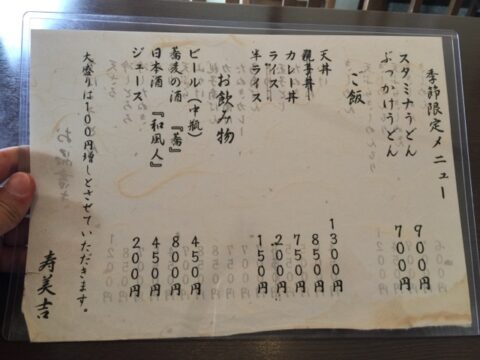 季節限定メニュー
スタミナうどん 900円
ぶっかけうどん 700円
ご飯
天丼 1300円
親子丼 850円
カレー丼 750円
ライス 200円
半ライス 150円
お飲み物
ビール(中瓶) 450円
蕎麦の酒『蕎』 800円
日本酒『和風人』 450円
ジュース 200円
大盛りは100円増しとさせていただきます。
寿美吉